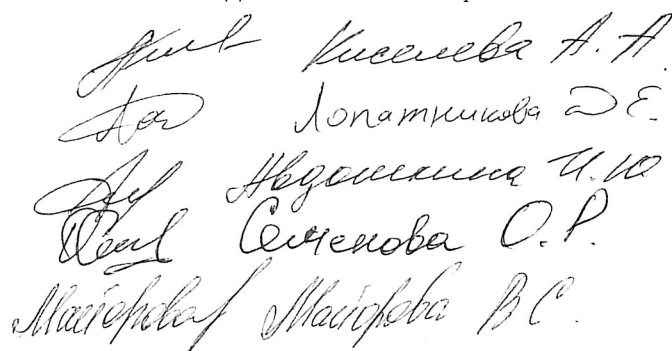 Киселева А. А.
Лопатникова Д Е.
Авдошкина И. Ю
Семенова О. Р.
Майорова Майорова В С.